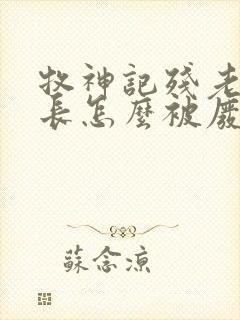 牧神記殘老
長怎麼被廢
蘇念涼